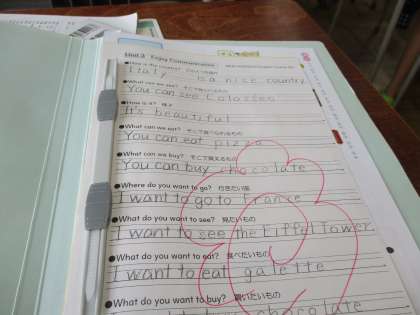 Unit 3 Enjoy Communication
How is the country?
Italy is a nice country
What can we see? そこで見られるもの
You can see Colossee
How is it? 様子
It's beautiful
What can we eat? そこで食べられるもの
You can eat pizza
What can we buy? そこで買えるもの
You can buy chocolate
Where do you want to go? 行きたい国
I want to go to France
What do you want to see? 見たいもの
I want to see the Eiffel Tower.
What do you want to eat? 食べたいもの
I want to eat galette
What do you want to buy? 買いたいもの
chocolate